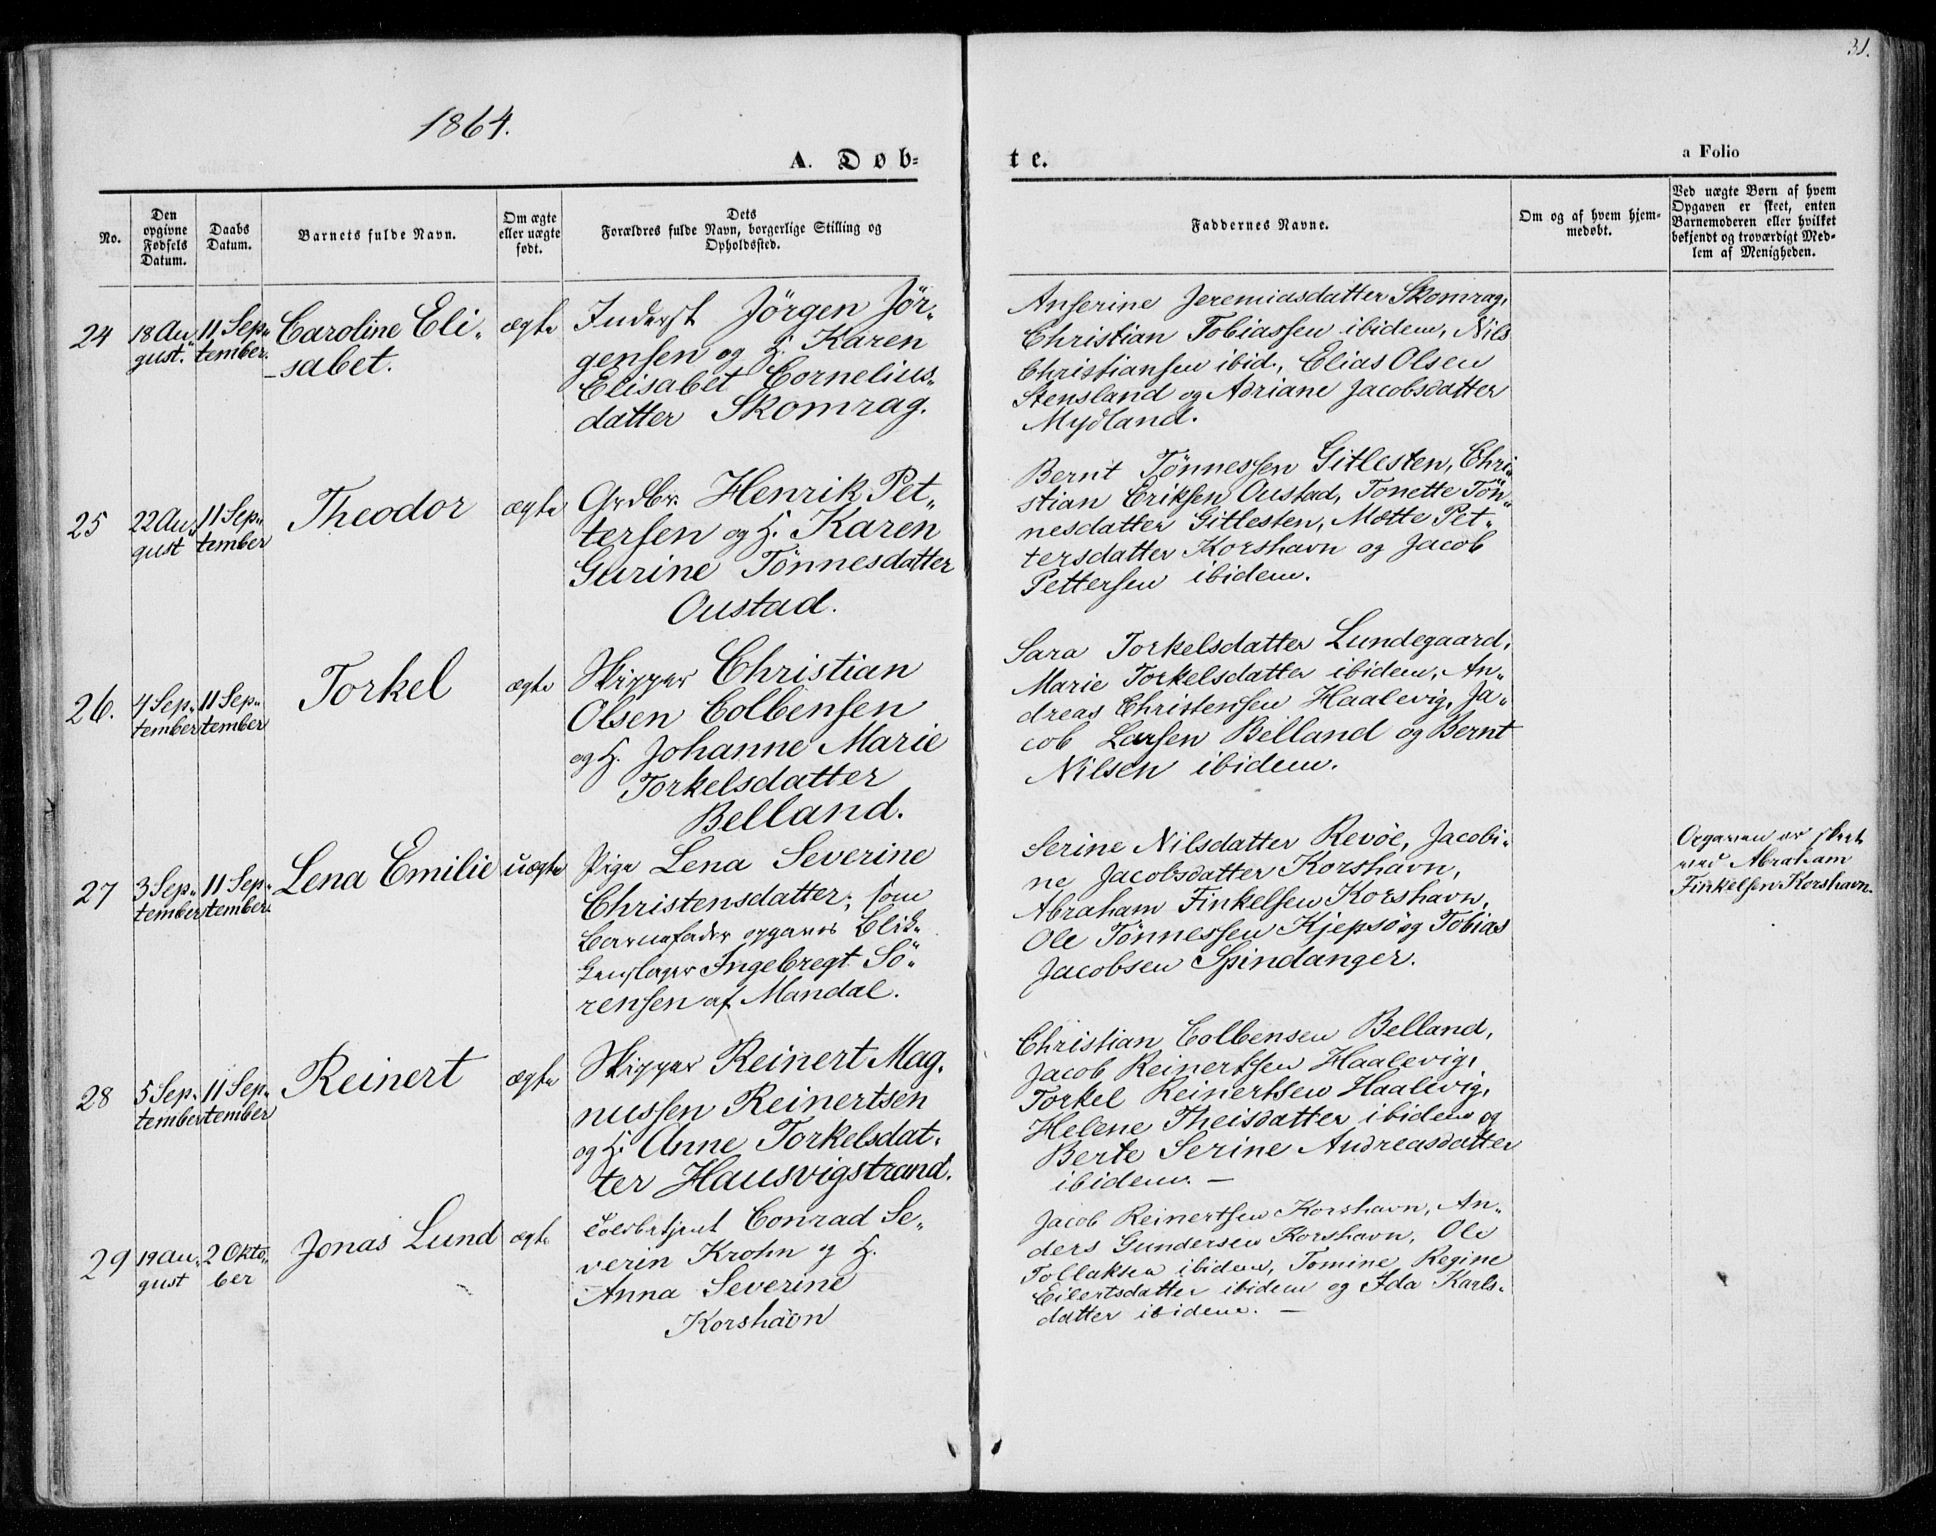 31.
1864.
A. Døb-
te.
a Folio
No.
Den
opgivne
Fødsels
Datum.
Daabs
Datum.
Barnets fulde Navn.
Om ægte
eller uægte
født.
Dets
Forældres fulde Navn, borgerlige Stilling og
Opholdssted.
Faddernes Navne.
Om og af hvem hjem-
medøbt.
Ved uægte Børn af hvem
Opgaven er skeet, enten
Barnemoderen eller hvilket
bekjendt og troværdigt Med-
lem af Menigheden.
24
18 Au-
gust.
11 Sep-
tember.
Caroline Eli-
sabet.
ægte
Inderst Jörgen Jör-
gensen og H. Karen
Elisabet Cornelius-
datter Skomrag.
Anserine Jeremiasdatter Skomrag,
Christian Tobiassen ibidem, Nils
Christiansen ibid., Elias Olsen
Stensland og Adriane Jacobsdatter
Mydland.
25
22 Au-
gust
11 Sep-
tember
Theodor
ægte
Grdbr. Henrik Pet-
tersen og H. Karen
Gurine Tönnesdatter
Oustad.
Bernt Tönnessen Gitlesten, Chri-
stian Eriksen Oustad, Tonette Tön-
nesdatter Gitlesten, Mætte Pet-
tersdatter Korshavn og Jacob
Pettersen ibidem.
26.
4 Sep-
tember
11 Sep-
tember
Torkel
ægte
Skipper Christian
Olsen Colbensen
og H. Johanne Marie
Torkelsdatter
Belland.
Sara Torkelsdatter Lundegaard,
Marie Torkelsdatter ibidem, An-
dreas Christensen Haalevig, Ja-
cob Larsen Belland og Bernt
Nilsen ibidem.
27
3 Sep-
tember
11 Sep-
tember.
Lena Emilie
uægte
Pige Lena Severine
Christensdatter; som
Barnefader opgaves Blik-
kenslager Ingebregt Sö-
rensen af Mandal.
Serine Nilsdatter Revöe, Jacobi-
ne Jacobsdatter Korshavn,
Abraham Finkelsen Korshavn,
Ole Tönnessen Kjepsö og Tobias
Jacobsen Spindanger.
Opgaven er skeet
ved Abraham
Finkelsen Korshavn.
28
5 Sep-
tember
11 Sep-
tember
Reinert
ægte
Skipper Reinert Mag-
nussen Reinertsen
og H. Anne Torkelsdat-
ter Hausvigstrand.
Christian Colbensen Belland,
Jacob Reinertsen Haalevig,
Torkel Reinertsen Haalevig,
Helene Theisdatter ibidem og
Berte Serine Andreasdatter
ibidem. —
29
19 Au-
gust
2 Okto-
ber
Jonas Lund
ægte
Toldbetjent Conrad Se-
verin Krohn og H.
Anna Severine
Korshavn
Jacob Reinertsen Korshavn, An-
ders Gundersen Korshavn, Ole
Tollaksen ibidem, Tomine Regine
Eilertsdatter ibidem og Ida Karls-
datter ibidem. —